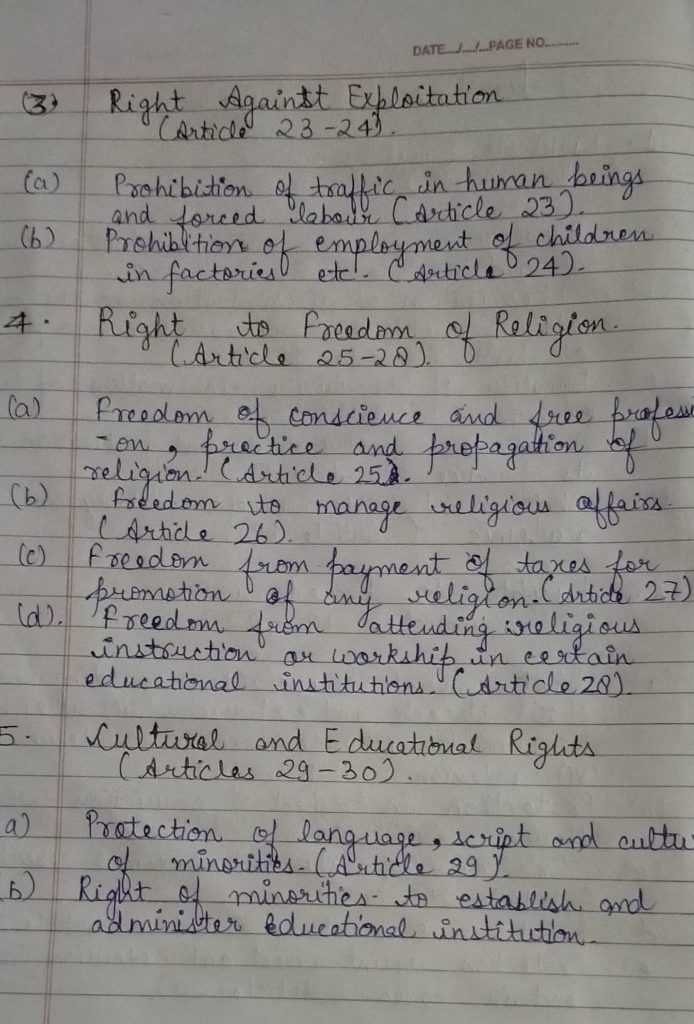 DATE..../..../....PAGE NO..........
(3) Right Against Exploitation
(Article 23-24).
(a) Prohibition of traffic in human beings
and forced labour (Article 23).
(b) Prohibition of employment of children
in factories etc. (Article 24).
4. Right to Freedom of Religion.
(Article 25-28).
(a) Freedom of conscience and free professi
-on, practice and propagation of
religion. (Article 25).
(b) freedom to manage religious affairs.
(Article 26).
(c) Freedom from payment of taxes for
promotion of any religion. (Article 27)
(d). Freedom from attending religious
instruction or workship in certain
educational institutions. (Article 28).
5. Cultural and Educational Rights
(Articles 29-30).
a) Protection of language, script and cultu
of minorities. (Article 29).
b) Right of minorities. to establish and
administer Educational institution.